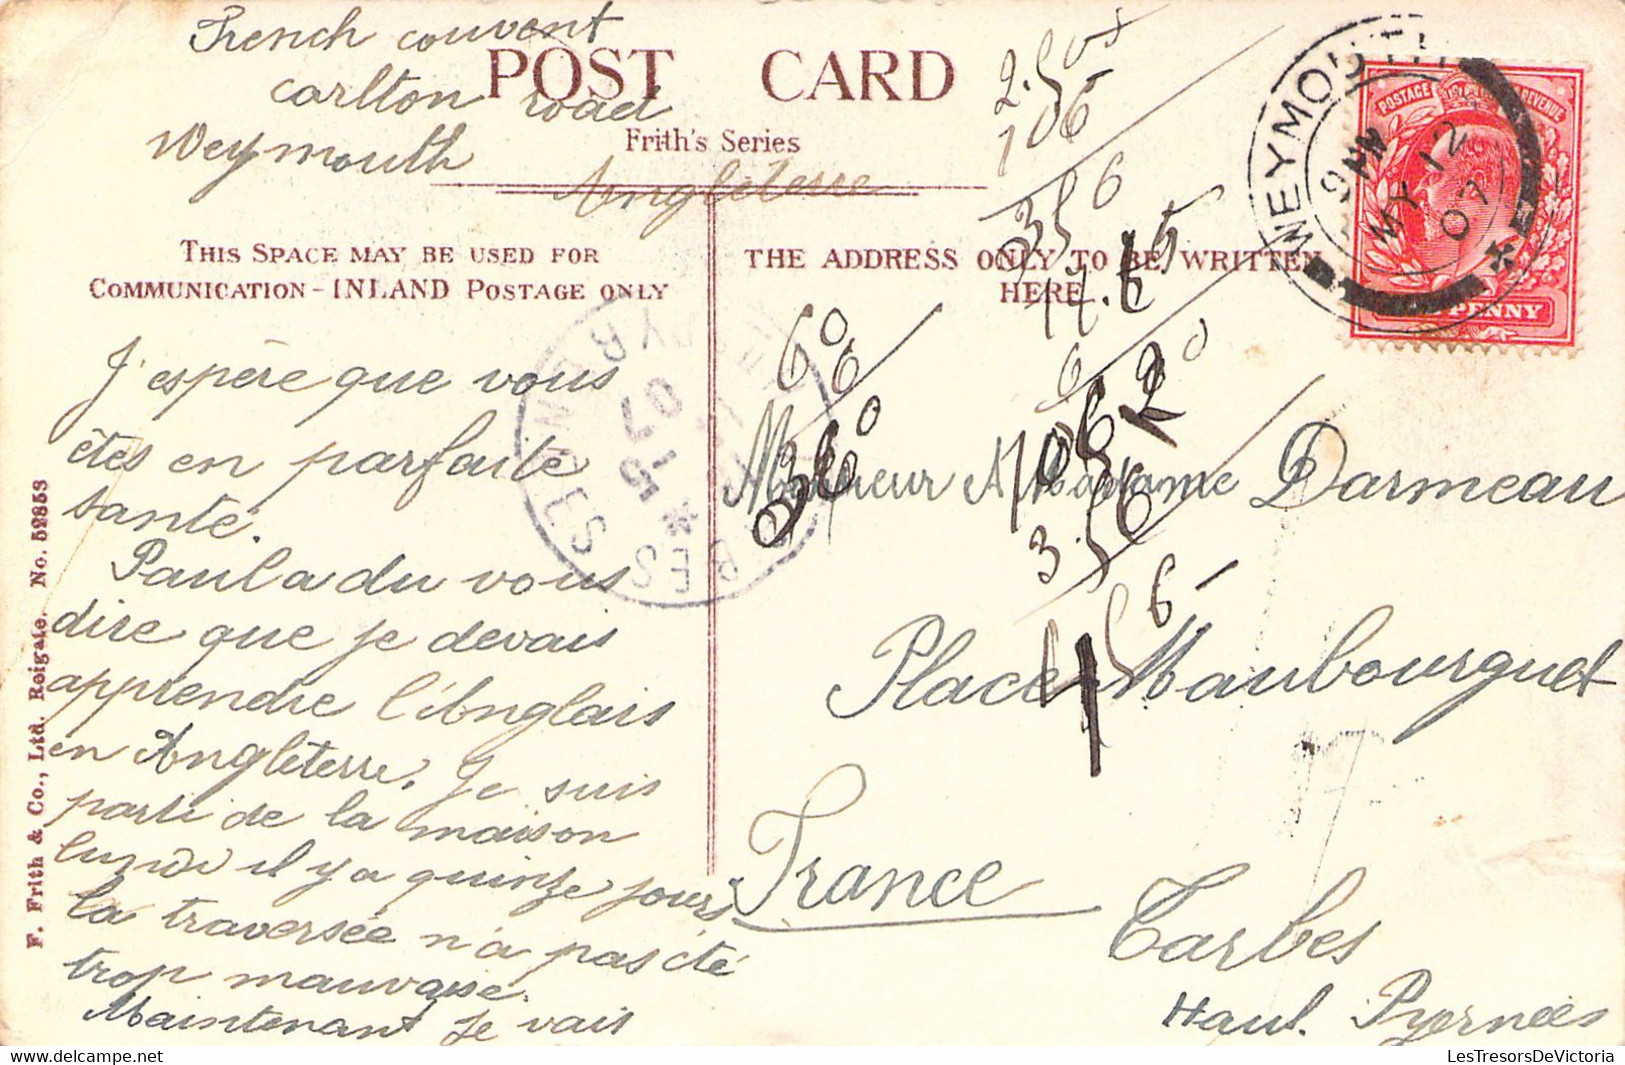 French couvent
carlton road
Weymouth
Angleterre
POST CARD
Frith's Series
THIS SPACE MAY BE USED FOR
COMMUNICATION - INLAND POSTAGE ONLY
THE ADDRESS ONLY TO BE WRITTEN
HERE
J'espère que vous
êtes en parfaite
santé.
Paul a du vous
dire que je devais
apprendre l'Anglais
en Angleterre. Je suis
parti de la maison
lundi il y a quinze jours
la traversée n'a pas été
trop mauvaise.
Maintenant je vais
Monsieur et Madame Darmeau
Place Maubourguet
France
Tarbes
Haut. Pyernées
2.50
106
356
11.65
6
60
6
360
1062
3.56
456
WEYMOUTH
9 PM
MY 12
07
POSTAGE REVENUE
PENNY
TARBES
HTES PYRENEES
15-5
07
F. Frith & Co., Ltd. Reigate. No. 52853
LesTresorsDeVictoria
https://www.delcampe.net